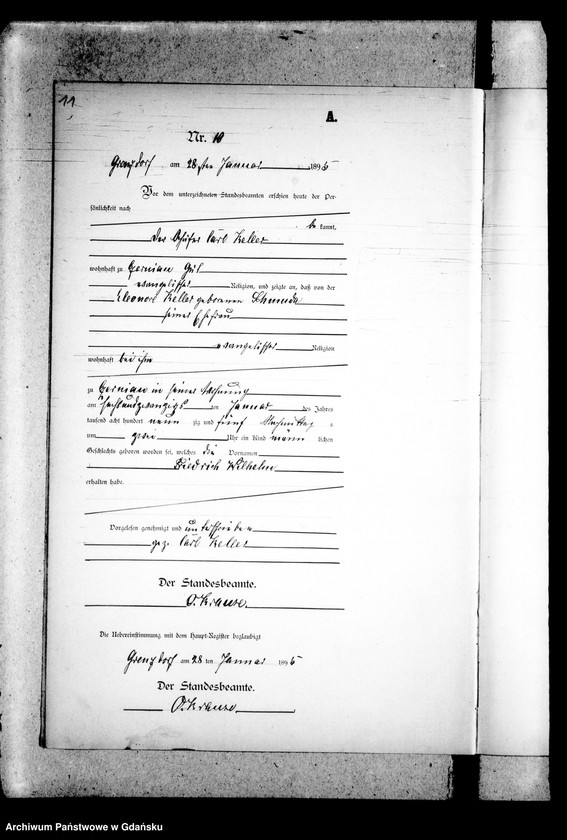 11
A.
Nr. 10
Grenzdorf am 28sten Januar 1895
Vor dem unterzeichneten Standesbeamten erschien heute der Per-
sönlichkeit nach
be kannt,
der Schäfer Carl Keller
wohnhaft zu Czernian Gut
evangelischer Religion, und zeigte an, daß von der
Eleonore Keller geborenen
seiner Ehefrau
evangelischer Religion
wohnhaft bei ihm
zu Czernian in seiner Wohnung
am sechsundzwanzigsten Januar des Jahres
tausend acht hundert neun zig und fünf Nachmittags
um zwei Uhr ein Kind männ lichen
Geschlechts geboren worden sei, welches die Vornamen
Friedrich Wilhelm
erhalten habe.
Vorgelesen, genehmigt und unterschrieben
gez. Carl Keller
Der Standesbeamte.
O. Krause.
Die Uebereinstimmung mit dem Haupt-Register beglaubigt
Grenzdorf am 28 ten Januar 1895
Der Standesbeamte.
O. Krause
Archiwum Państwowe w Gdańsku